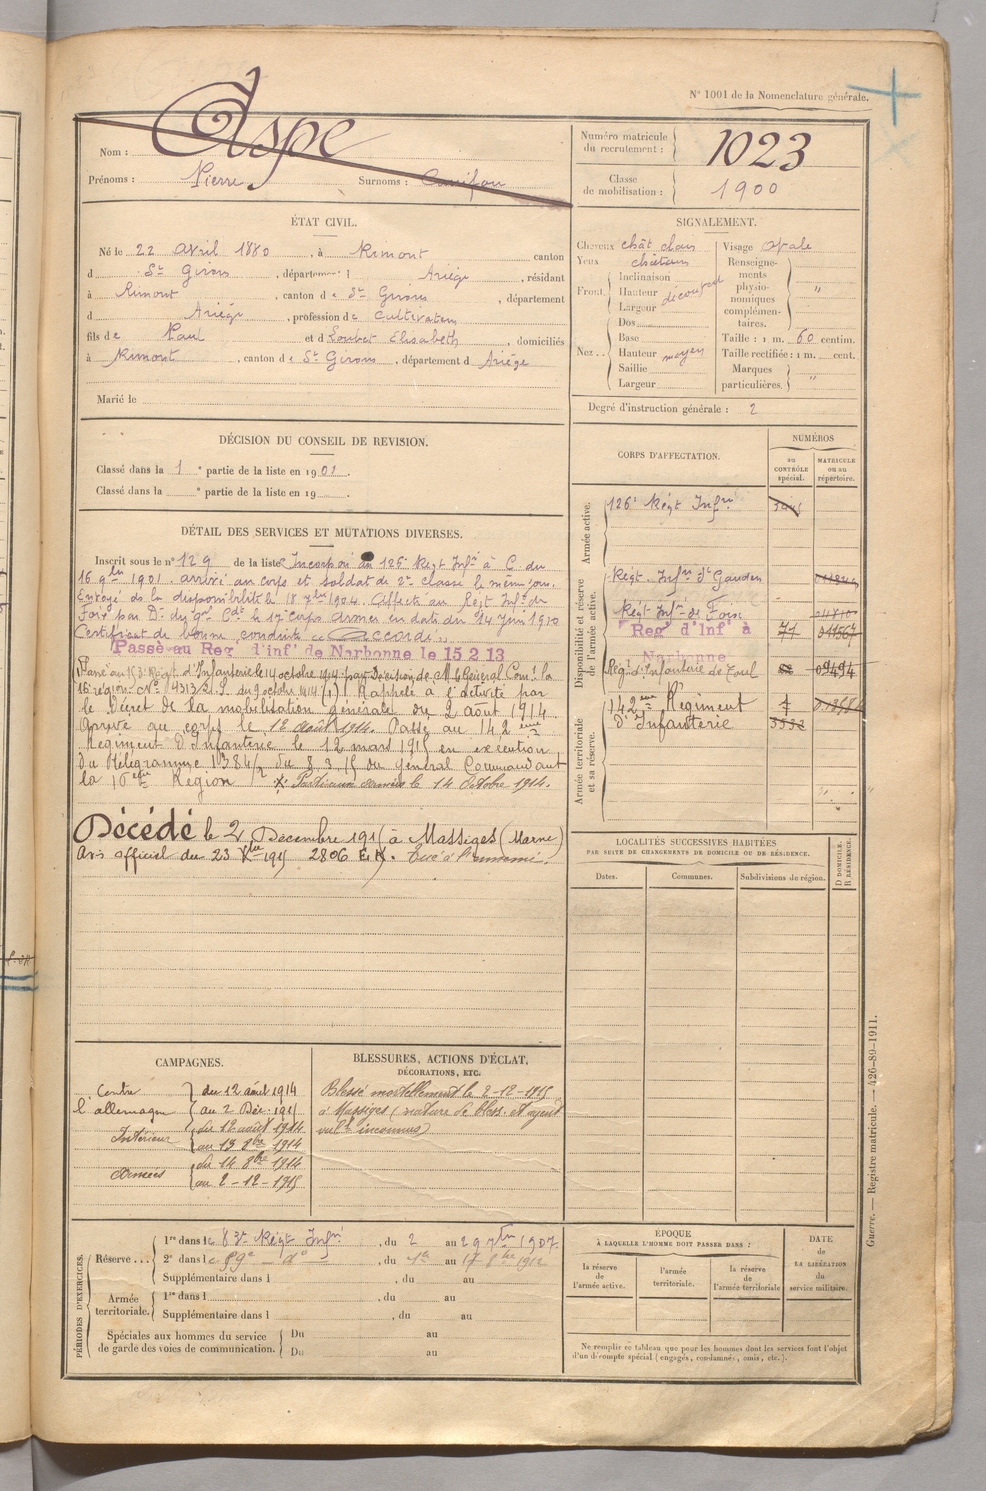 N° 1001 de la Nomenclature générale.
Nom : Aspe
Prénoms : Pierre. Surnoms :
Numéro matricule du recrutement : 1023
Classe de mobilisation : 1900
ÉTAT CIVIL.
Né le 22 Avril 1880, à Rimont canton
d St Girons, département d Ariège, résidant
à Rimont, canton de St Girons, département
d Ariège, profession de cultivateur
fils de Paul et d Loubet Elisabeth, domiciliés
à Rimont, canton de St Girons, département d Ariège
Marié le
SIGNALEMENT.
Cheveux chât clair
Yeux châtains
Front. Inclinaison
Hauteur découvert
Largeur
Nez .. Dos
Base
Hauteur moyen
Saillie
Largeur
Visage ovale
Renseignements physionomiques complémentaires. "
Taille : 1 m. 60 centim.
Taille rectifiée : 1 m. cent.
Marques particulières. "
Degré d'instruction générale : 2
DÉCISION DU CONSEIL DE REVISION.
Classé dans la 1e partie de la liste en 1901.
Classé dans la e partie de la liste en 19 .
DÉTAIL DES SERVICES ET MUTATIONS DIVERSES.
Inscrit sous le n° 129 de la liste Incorporé au 126e Régt Infrie à C. du
16 9bre 1901. arrivé au corps et soldat de 2e classe le même jour.
Envoyé de la disponibilité le 18 7bre 1904. Affecté au Régt Infrie de
Foix par Dn du Gnal Cdt le 17e Corps d'Armée en date du 14 Juin 1910
Certificat de bonne conduite " Accordé ".
Passé au Reg. d'inf° de Narbonne le 15 2 13
Passé au 153e Régt d'Infanterie le 14 octobre 1914 par Décision de M. le Général Comt la
16e région N° 4313 2.S. du 9 octobre 1914 (1). Rappelé à l'activité par
le Décret de la mobilisation générale du 2 août 1914.
Arrivé au corps le 12 Août 1914. Passé au 142ème
Régiment d'Infanterie le 12 mars 1915 en exécution
du Télégramme 1384/2 du 8.3.15 du Général Commandant
la 16ème Région
le 14 Octobre 1914.
Décédé le 2 Décembre 1915 à Massiges (Marne)
Avis officiel du 23 Xbre 1915 2806 E.K. Tué à l'ennemi.
CORPS D'AFFECTATION.
NUMÉROS
au CONTRÔLE spécial.
MATRICULE ou au répertoire.
Armée active.
126e Régt Infrie
Disponibilité et réserve de l'armée active.
Régt. Infrie St Gaudens
Régt Infrie de Foix
Reg' d'Inf° à Narbonne 71 01156
Régt d'Infanterie de Toul 09494
Armée territoriale et sa réserve.
142ème Régiment d'Infanterie
LOCALITÉS SUCCESSIVES HABITÉES
PAR SUITE DE CHANGEMENTS DE DOMICILE OU DE RÉSIDENCE.
Dates. Communes. Subdivisions de région. D DOMICILE. R RÉSIDENCE.
CAMPAGNES.
Contre l'allemagne du 12 août 1914
au 2 Déc. 1915
Intérieur du 12 août 1914
au 13 8bre 1914
Armées du 14 8bre 1914
au 2-12-1915
BLESSURES, ACTIONS D'ÉCLAT,
DÉCORATIONS, ETC.
Blessé mortellement le 2-12-1915
à Massiges (nature de bless. et agent
vulnt inconnus)
PÉRIODES D'EXERCICES.
Réserve ... 1re dans le 83e Régt Infrie, du 2 au 29 7bre 1907
2e dans le 59e d°, du 1er au 17 8bre 1912
Supplémentaire dans l , du au
Armée territoriale. 1re dans l , du au
Supplémentaire dans l , du au
Spéciales aux hommes du service de garde des voies de communication. Du au
Du au
ÉPOQUE
À LAQUELLE L'HOMME DOIT PASSER DANS :
la réserve de l'armée active.
l'armée territoriale.
la réserve de l'armée territoriale
DATE de LA LIBÉRATION du service militaire.
Ne remplir ce tableau que pour les hommes dont les services font l'objet
d'un décompte spécial (engagés, condamnés, omis, etc.).
Guerre. — Registre matricule. — 426-89-1911.